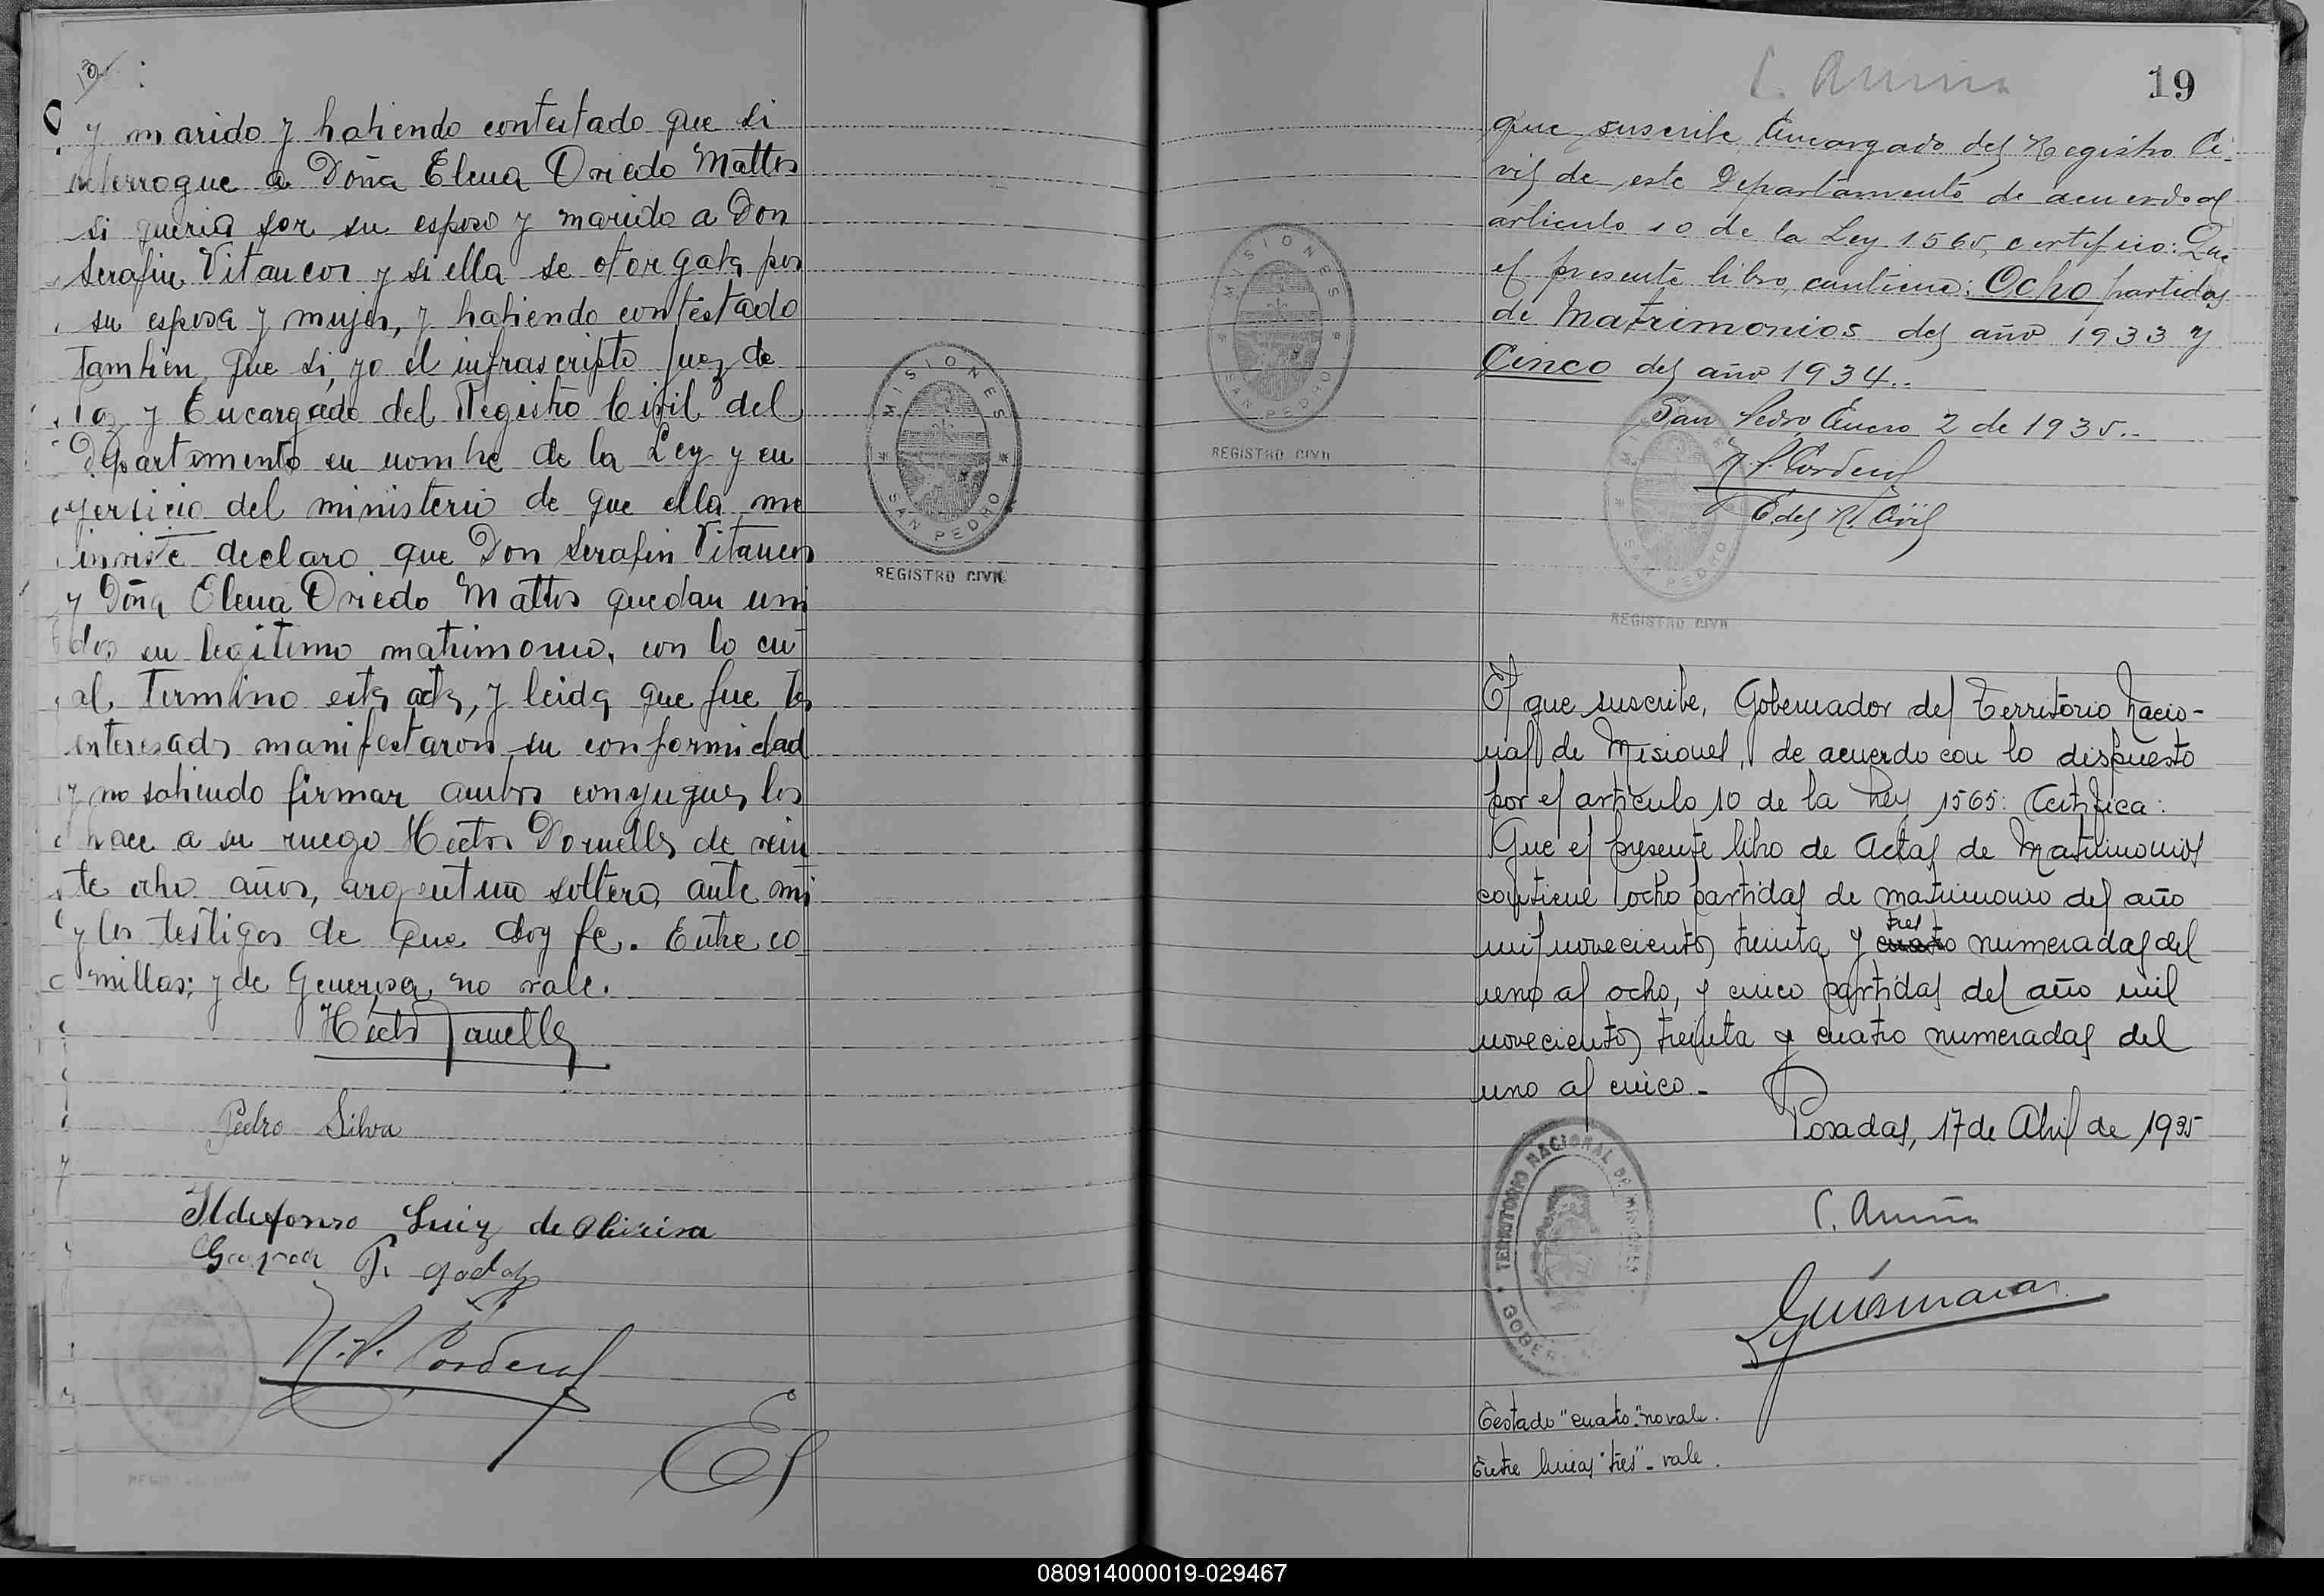 y marido y habiendo contestado que si
interrogue a Doña Elena Oviedo Mattos
si queria por su esposo y marido a Don
Serafin Vitancor y si ella se otorgaba por
su esposa y mujer, y habiendo contestado
tambien que si, yo el infrascripto Juez de
Paz y Encargado del Registro Civil del
Departamento en nombre de la Ley y en
ejersicio del ministerio de que ella me
inviste declaro que Don Serafin Vitancor
y Doña Elena Oviedo Mattos quedan uni
dos en legitimo matrimonio, con lo cu
al termino esta acta, y leida que fue los
interesados manifestaron su conformidad
y no sabiendo firmar ambos conyugues los
hace a su ruego Hector Dornelles de vein
te ocho años, argentino soltero, ante mi
y los testigos de que doy fe. Entre co
millas; y de Generosa, no vale.
Pedro Silva
Ildefonso Luiz de Oliveira
Gaspar
N. P. Cordero
El
MISIONES
SAN PEDRO
REGISTRO CIVIL
MISIONES
SAN PEDRO
REGISTRO CIVIL
19
que suscribe Encargado del Registro Ci-
vil de este Departamento de acuerdo al
articulo 10 de la Ley 1565, certifico: Que
el presente libro, contiene: Ocho partidas
de Matrimonios del año 1933 y
Cinco del año 1934..
San Pedro Enero 2 de 1935..
N. P. Cordero
E. del R. Civil
MISIONES
SAN PEDRO
REGISTRO CIVIL
El que suscribe, Gobernador del Territorio Nacio-
nal de Misiones, de acuerdo con lo dispuesto
por el articulo 10 de la Ley 1565: Certifica:
Que el presente libro de Actas de Matrimonios
contiene ocho partidas de matrimonio del año
tres
mil novecientos treinta y cuatro numeradas del
uno al ocho, y cinco partidas del año mil
novecientos treinta y cuatro numeradas del
uno al cinco.-
Posadas, 17 de Abril de 1935
TERRITORIO NACIONAL DE MISIONES
Testado "cuatro" no vale.
Entre lineas "tres" - vale.
080914000019-029467